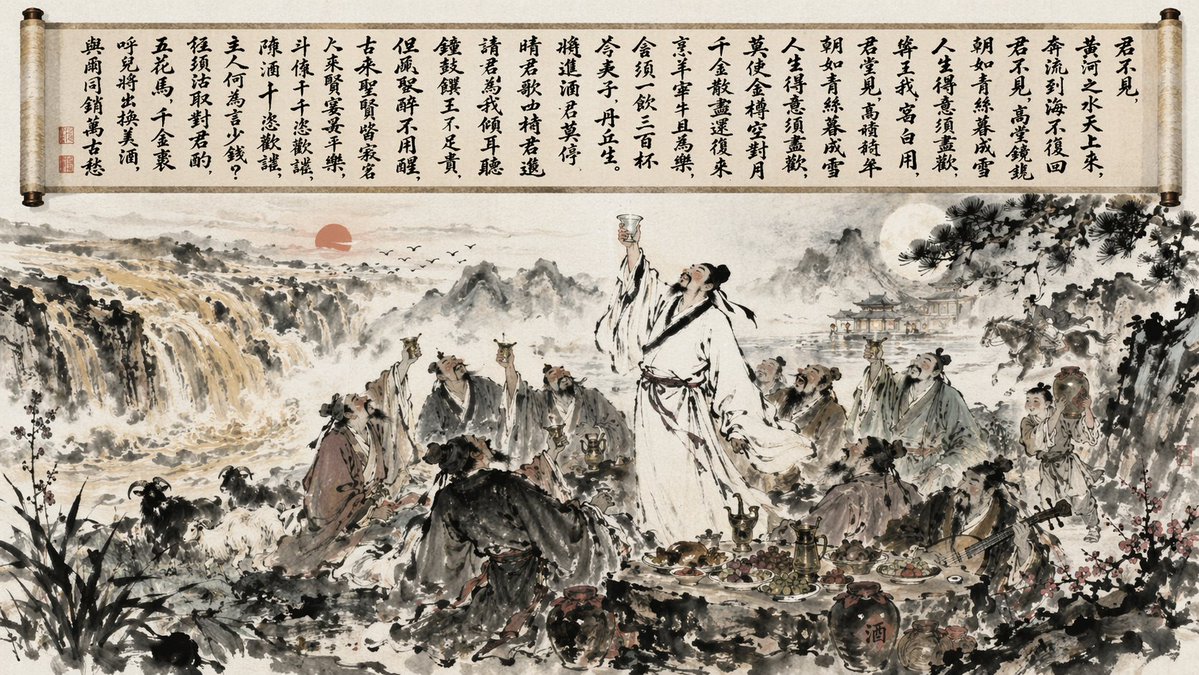 君不見,
黃河之水天上來,
奔流到海不復回
君不見,高堂鏡
朝如青絲暮成雪
人生得意須盡歡,
王我,宮白用,
君堂見,高年
朝如青絲暮成雪
人生得意須盡歡,
莫使金樽空對月
千金散盡還復來
烹羊宰牛且為樂,
須一飲三百杯
夫子,丹丘生。
將進酒君莫停
晴君歌椅君進
請君為我傾耳聽
鐘鼓饌王不足貴,
但醉不用醒,
古来聖賢皆寂客
来賢宴平樂,
斗千千恣歡謔,
陳酒十恣歡謔,
主人何為言少錢?
徑須沽取對君酌,
五花馬,千金裘
呼兒將出換美酒,
與爾同銷萬古愁
酒